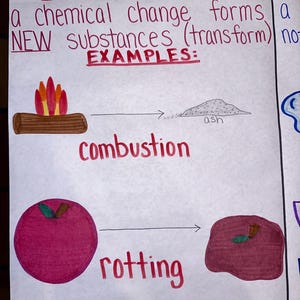 a chemical change forms
NEW substances (transform)
EXAMPLES:
ash
combustion
rotting
a
no